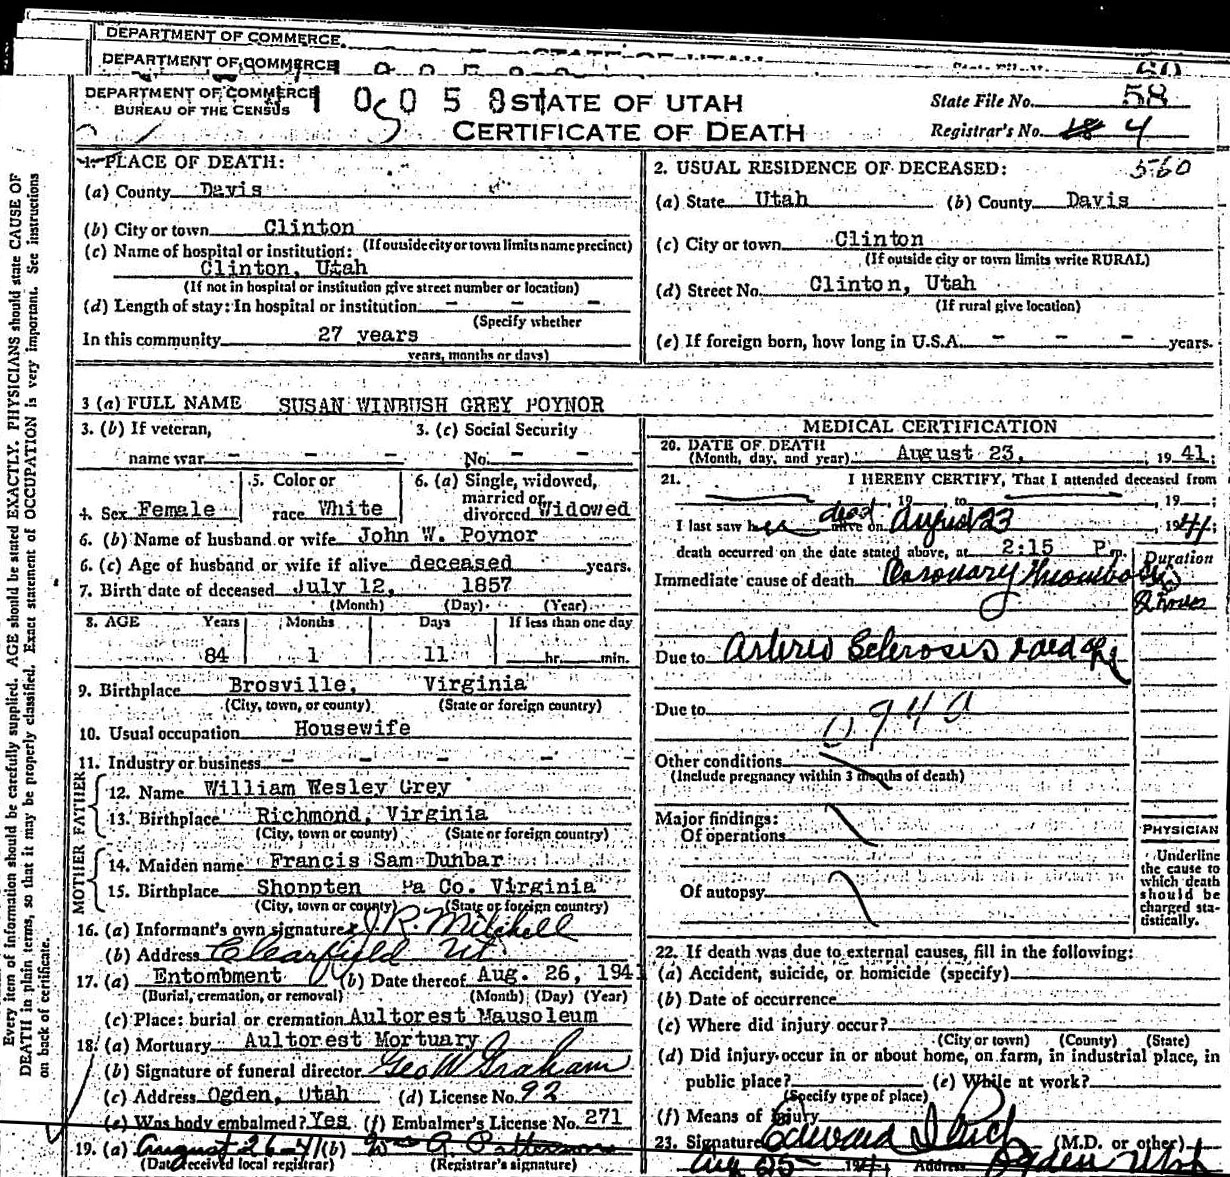 DEPARTMENT OF COMMERCE
DEPARTMENT OF COMMERCE
DEPARTMENT OF COMMERCE
BUREAU OF THE CENSUS
STATE OF UTAH
CERTIFICATE OF DEATH
State File No. 58
Registrar's No. 4
1. PLACE OF DEATH:
(a) County Davis
(b) City or town Clinton
(If outside city or town limits name precinct)
(c) Name of hospital or institution:
Clinton, Utah
(If not in hospital or institution give street number or location)
(d) Length of stay: In hospital or institution - - -
(Specify whether
In this community 27 years
years, months or days)
2. USUAL RESIDENCE OF DECEASED: 560
(a) State Utah (b) County Davis
(c) City or town Clinton
(If outside city or town limits write RURAL)
(d) Street No. Clinton, Utah
(If rural give location)
(e) If foreign born, how long in U.S.A. - - - years.
3 (a) FULL NAME SUSAN WINBUSH GREY POYNOR
3. (b) If veteran, name war - - - -
3. (c) Social Security No. - - -
4. Sex Female
5. Color or race White
6. (a) Single, widowed, married or divorced Widowed
6. (b) Name of husband or wife John W. Poynor
6. (c) Age of husband or wife if alive deceased years.
7. Birth date of deceased July 12, 1857
(Month) (Day) (Year)
8. AGE Years Months Days If less than one day
84 1 11 hr. min.
9. Birthplace Brosville, Virginia
(City, town, or county) (State or foreign country)
10. Usual occupation Housewife
11. Industry or business - - - - -
FATHER
12. Name William Wesley Grey
13. Birthplace Richmond, Virginia
(City, town or county) (State or foreign country)
MOTHER
14. Maiden name Francis Sam Dunbar
15. Birthplace Shoppten Pa Co. Virginia
(City, town or county) (State or foreign country)
16. (a) Informant's own signature J.R. Mitchell
(b) Address Clearfield Ut
17. (a) Entombment (b) Date thereof Aug. 26, 1941
(Burial, cremation, or removal) (Month) (Day) (Year)
(c) Place: burial or cremation Aultorest Mausoleum
18. (a) Mortuary Aultorest Mortuary
(b) Signature of funeral director Geo W Graham
(c) Address Ogden, Utah (d) License No. 92
(e) Was body embalmed? Yes (f) Embalmer's License No. 271
19. (a) August 26-41 (b)
(Date received local registrar) (Registrar's signature)
MEDICAL CERTIFICATION
20. DATE OF DEATH
(Month, day, and year) August 23, 1941;
21. I HEREBY CERTIFY, That I attended deceased from
, 19 to , 19 ;
I last saw her dead alive on August 23 1941;
death occurred on the date stated above, at 2:15 P m.
Duration
Immediate cause of death Coronary Thrombosis
2 hours
Due to Arterio Sclerosis & old age
Due to
094a
Other conditions
(Include pregnancy within 3 months of death)
Major findings:
Of operations
Of autopsy
PHYSICIAN
Underline
the cause to
which death
should be
charged sta-
tistically.
22. If death was due to external causes, fill in the following:
(a) Accident, suicide, or homicide (specify)
(b) Date of occurrence
(c) Where did injury occur?
(City or town) (County) (State)
(d) Did injury occur in or about home, on farm, in industrial place, in
public place? (e) While at work?
(Specify type of place)
(f) Means of Injury
23. Signature Edward (M.D. or other)
Aug 25 1941 Address Ogden Utah
Every item of information should be carefully supplied. AGE should be stated EXACTLY. PHYSICIANS should state CAUSE OF
DEATH in plain terms, so that it may be properly classified. Exact statement of OCCUPATION is very important. See instructions
on back of certificate.